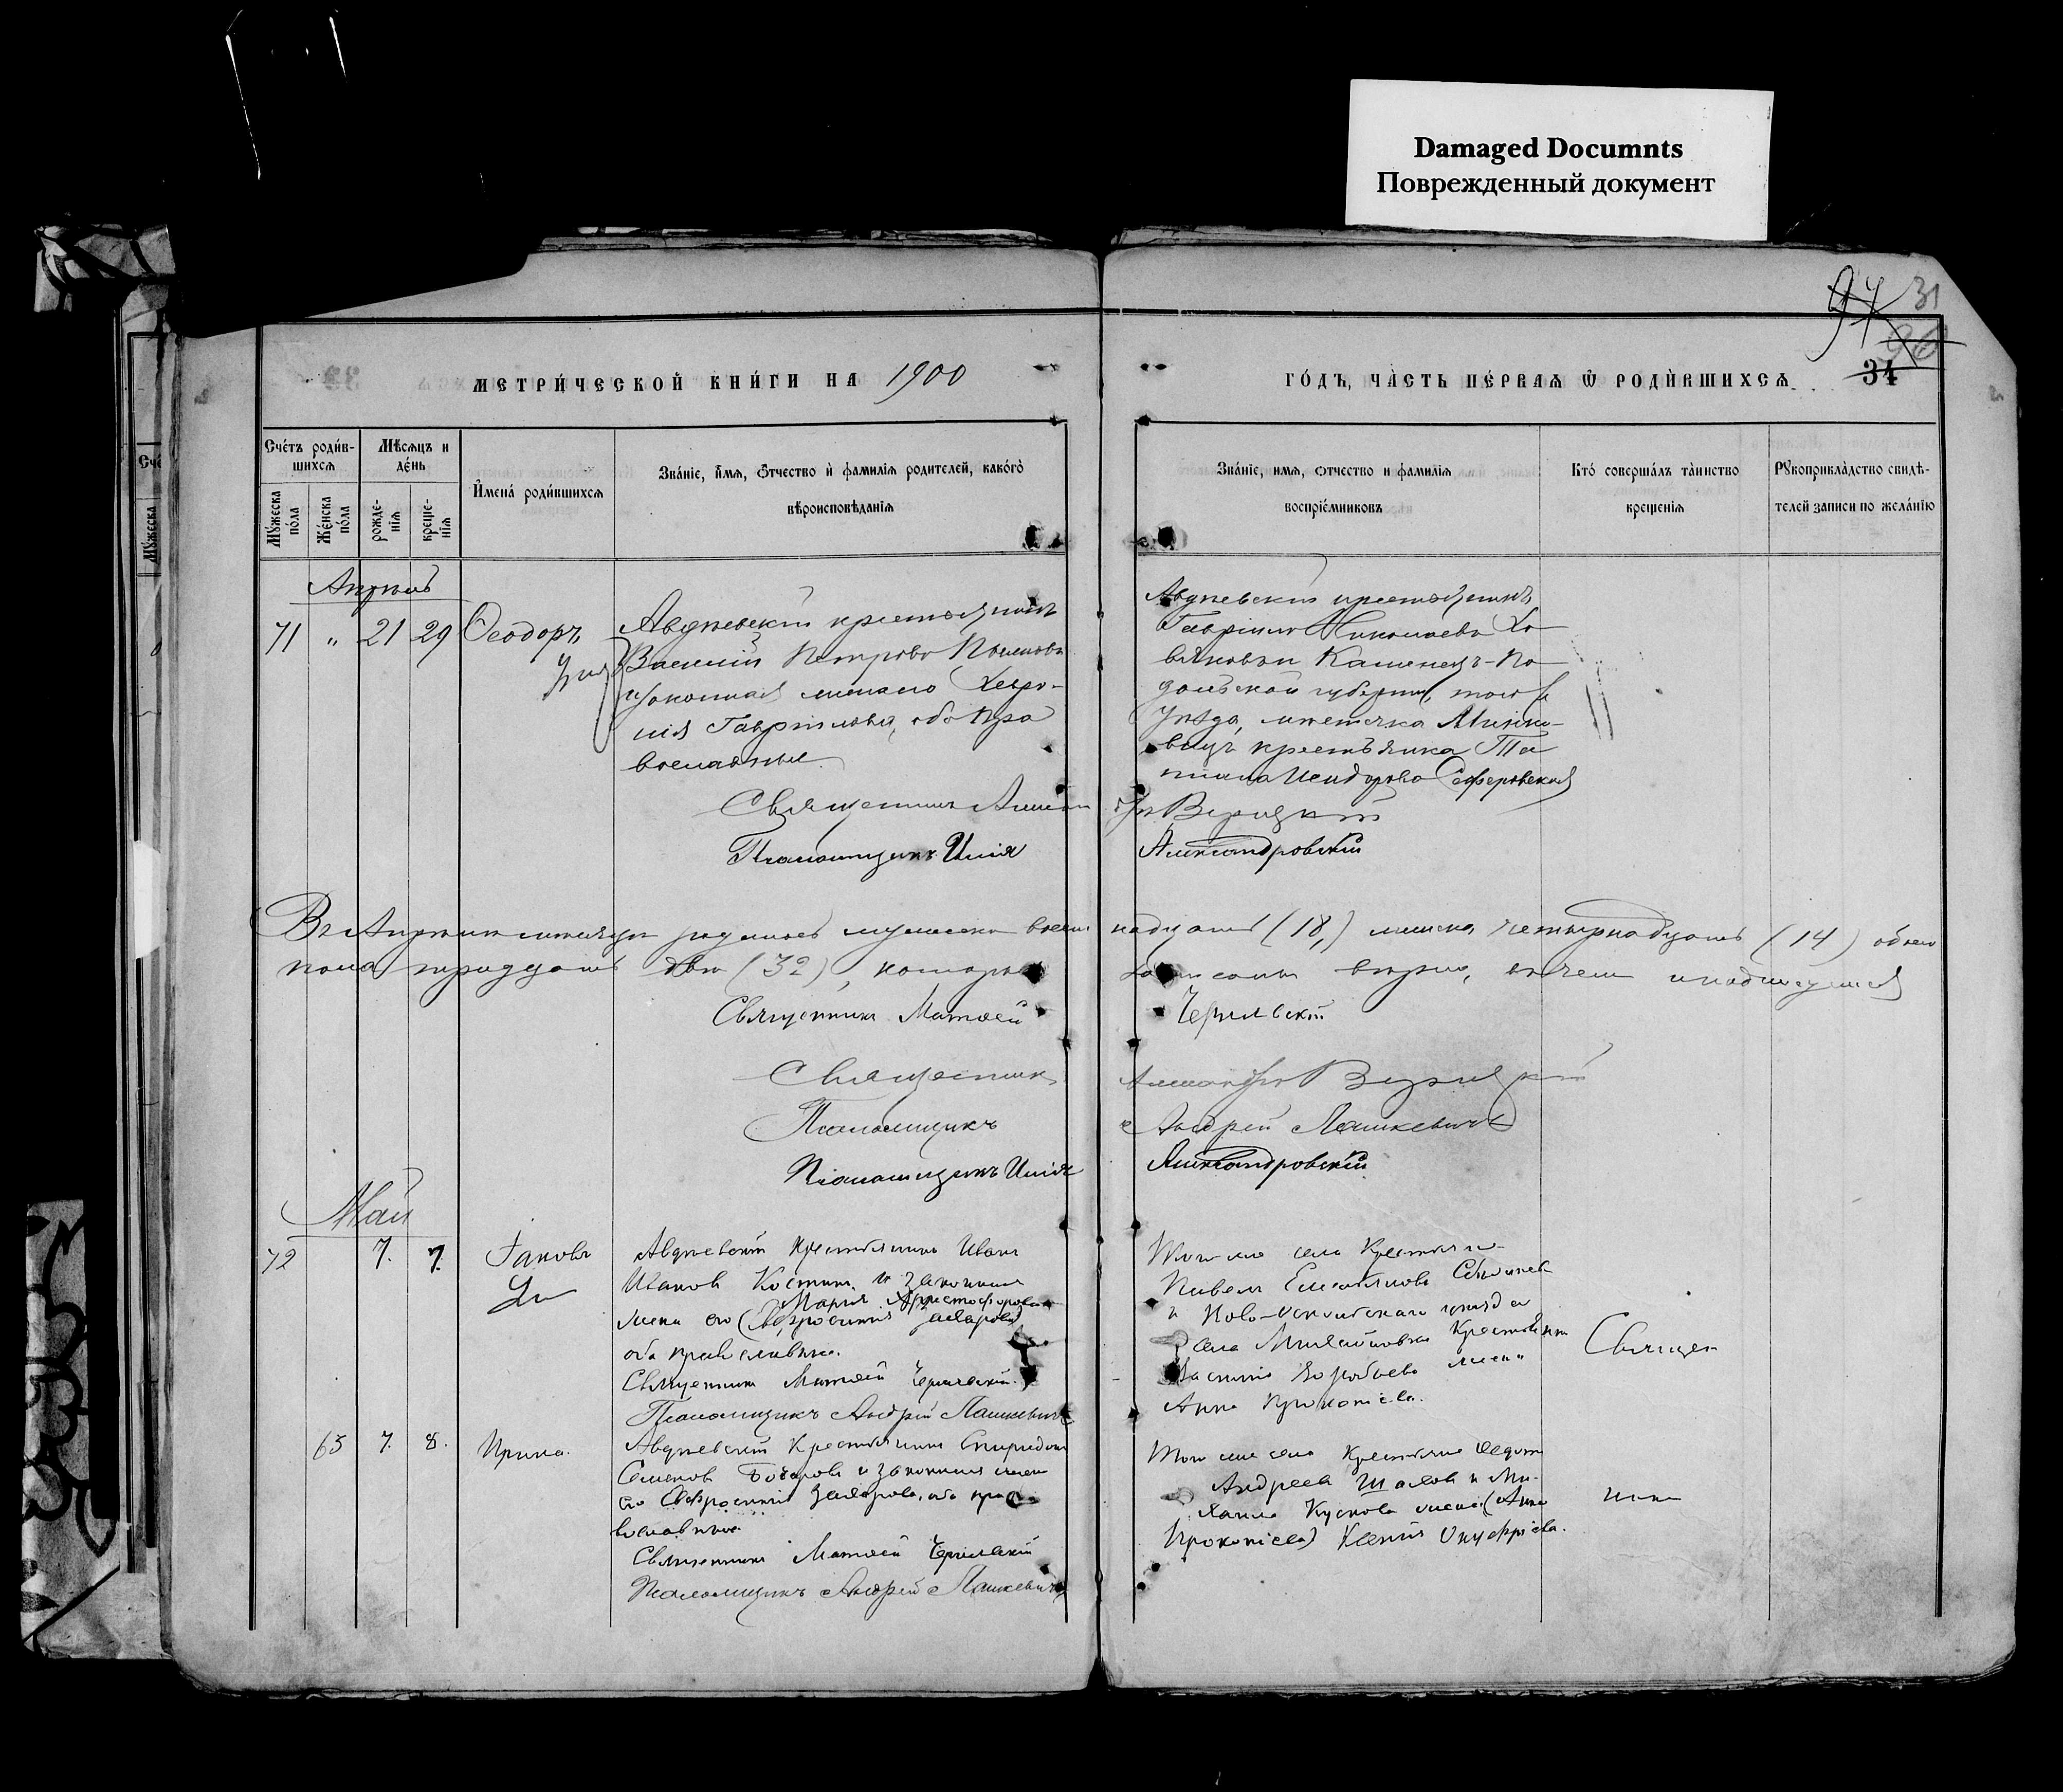 Damaged Documnts
Поврежденный документ
97 31
96
34
МЕТРИ́ЧЕСКОЙ КНИ́ГИ НА 1900
ГО́ДЪ, ЧА̀СТЬ ПЕ́РВАѦ Ѿ РОДЍВШИХСѦ
Сче́тъ роди́в-
шихсѧ
Мѣсѧцъ и
де́нь
И҆мена́ роди́вшихсѧ
Зва́нїе, и҆́мѧ, ѻ҆́тчество и҆ фами́лїѧ родителей, како́гѡ̀
вѣроисповѣ́данїѧ
Мꙋ́жеска
по́ла
Же́нска
по́ла
рожде-
нїѧ
креще-
нїѧ
Зва́нїе, имѧ, ѻтчество и фамилїѧ
воспрїе́мниковъ
Кто́ соверша́лъ та̀инство
крещенїѧ
Рꙋкоприкла̀дство свидѣ-
телей записи по жела́нїю
Апрѣль
71 " 21 29 Ѳеодоръ
Авдѣевскій крестьянинъ
Василій Петровъ
законная жена его Хевро-
нія Гаврилова, оба пра
вославные.
Авдѣевскій крестьянинъ
Гавріилъ Николаевъ Хо
Каменецъ-По
дольской губерніи, того же
уѣзда, мѣстечка Минко-
вецъ крестьянка Та
тіана Исидорова
Священникъ Александръ Верицкій
Псаломщикъ Илія Александровскій
Въ Апрѣлѣ мѣсяцѣ родилось мужеска восем надцать (18,) женска четырнадцать (14) обоего
пола тридцать два (32), которые записаны вѣрно, въ чемъ и подписуемся
Священникъ Матѳей Чернявскій
Священникъ Александръ Верицкій
Псаломщикъ Андрей Лашкевичъ
Псаломщикъ Илія Александровскій
Май
72 7. 7. Іаковъ
Авдѣевскій крестьянинъ Иванъ
Ивановъ Костинъ и законная
Марія Христофорова
жена его (Евфросинія Захарова)
оба православные.
Священникъ Матѳей Чернявскій.
Псаломщикъ Андрей Лашкевичъ
Того же села Крестьяне
Павелъ Емельяновъ
и Ново-Оскольскаго уѣзда
села Михайловки Крестьянина
Василія Воробьева жена
Анна Прокопіева.
Священ
65 7. 8. Ирина.
Авдѣевскій Крестьянинъ Спиридонъ
Семеновъ Бочаровъ и законная жена
его Евфросинія Захарова, оба пра
вославные.
Священникъ Матѳей Чернявскій
Псаломщикъ Андрей Лашкевичъ
Того же села Крестьяне Ѳедотъ
Андреевъ Шаховъ и Ми-
хаила Кускова жена (Анна
Прокопіева) Ксенія Онуфріева.